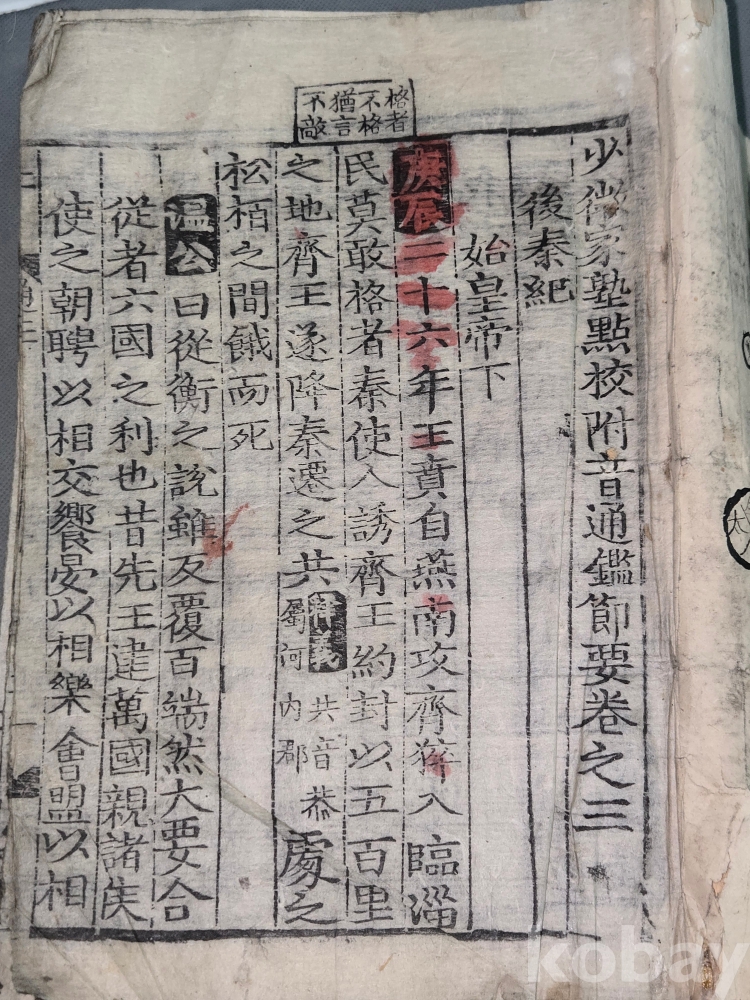 少微家塾點校附音通鑑節要卷之三
後秦紀
始皇帝下
格者
不格
猶言
不敵
庚辰二十六年王賁自燕南攻齊猝入臨淄
民莫敢格者秦使人誘齊王約封以五百里
之地齊王遂降秦遷之共釋義共音恭屬河內郡處之
松栢之間餓而死
温公曰從衡之說雖反覆百端然大要合
從者六國之利也昔先王建萬國親諸侯
使之朝聘以相交饗宴以相樂會盟以相
kobay